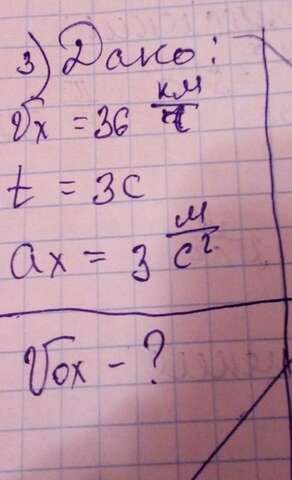 3) Дано:
Vx = 36 км/ч
t = 3с
ax = 3 м/с²
V0x - ?